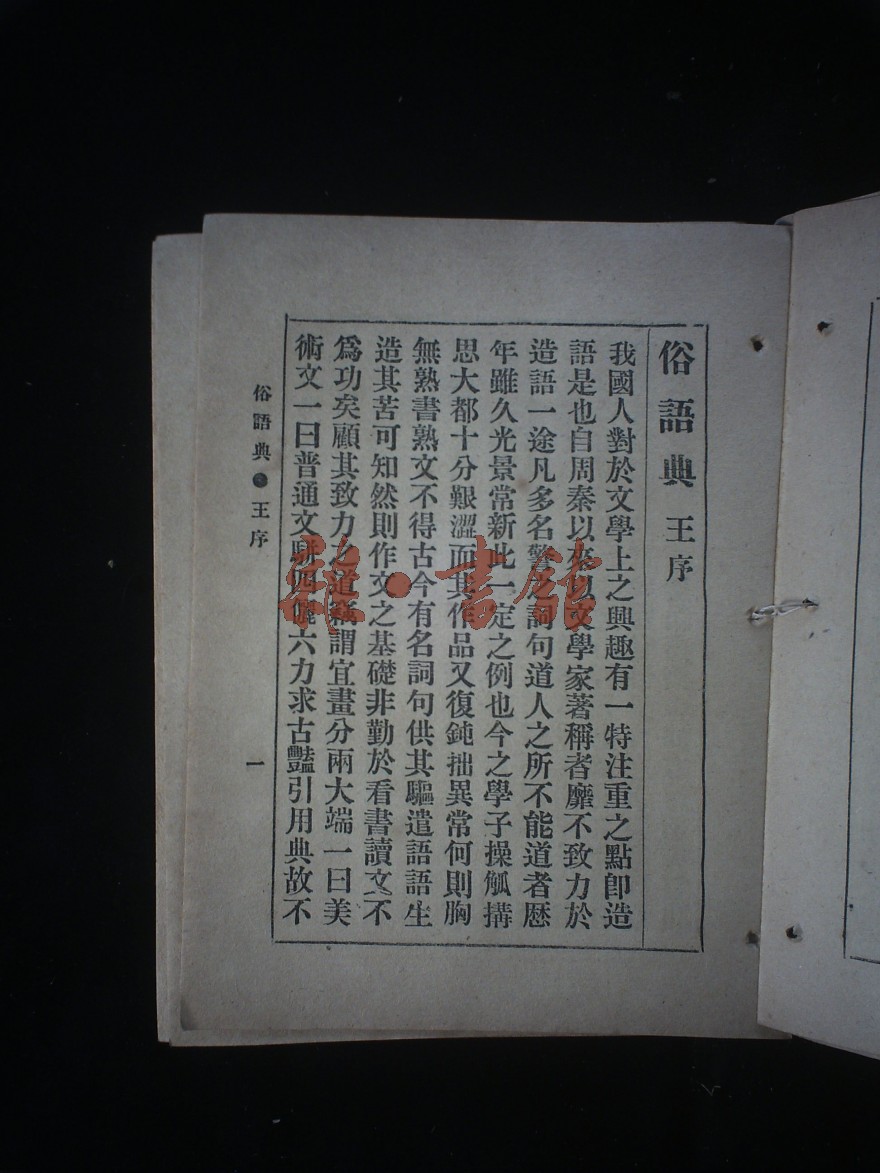 俗語典 王序
我國人對於文學上之興趣有一特注重之點卽造
語是也自周秦以來以文學家著稱者靡不致力於
造語一途凡多名警之詞句道人之所不能道者歷
年雖久光景常新此一定之例也今之學子操觚搆
思大都十分艱澀而其作品又復鈍拙異常何則胸
無熟書熟文不得古今有名詞句供其驅遣語語生
造其苦可知然則作文之基礎非勤於看書讀文不
爲功矣顧其致力之道竊謂宜畫分兩大端一曰美
術文一曰普通文駢四儷六力求古豔引用典故不
俗語典●王序
一
雜·書館